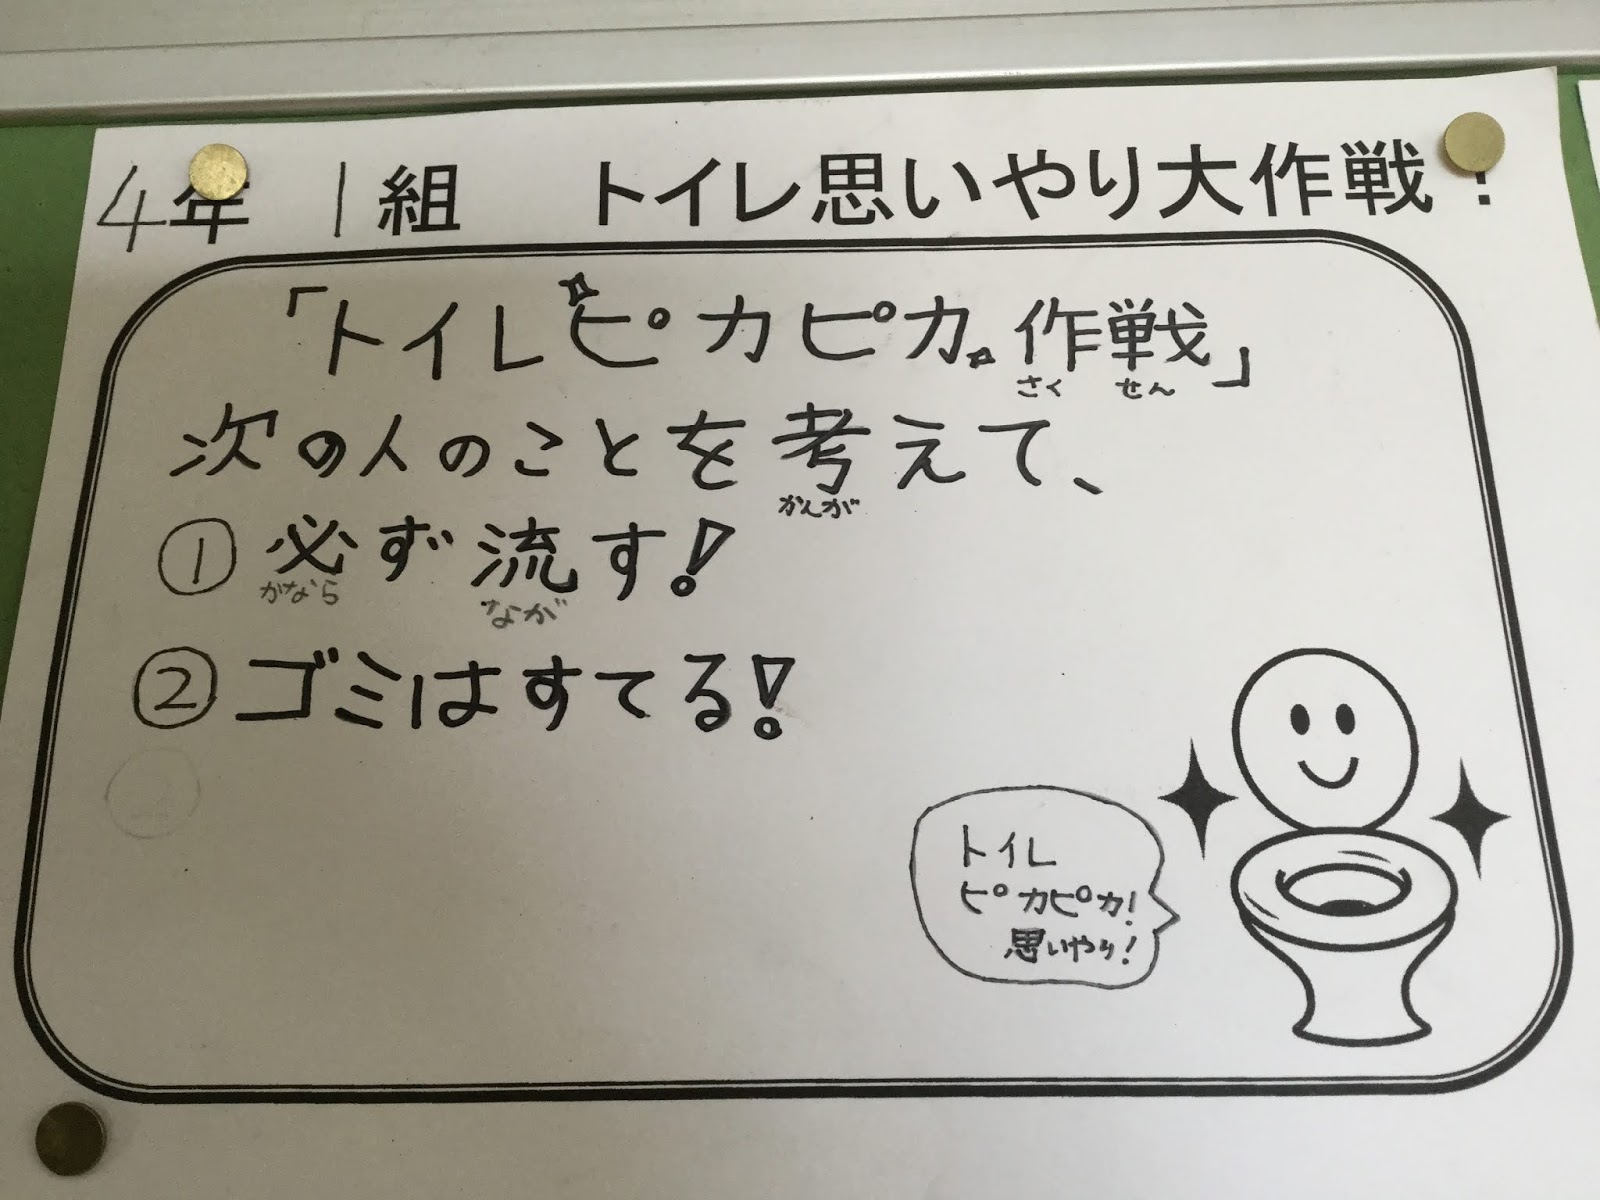 4年 1組 トイレ思いやり大作戦！
「トイレピカピカ作戦」
さく せん
次の人のことを考えて、
かんが
①必ず流す！
かなら なが
②ゴミはすてる！
トイレ
ピカピカ！
思いやり！